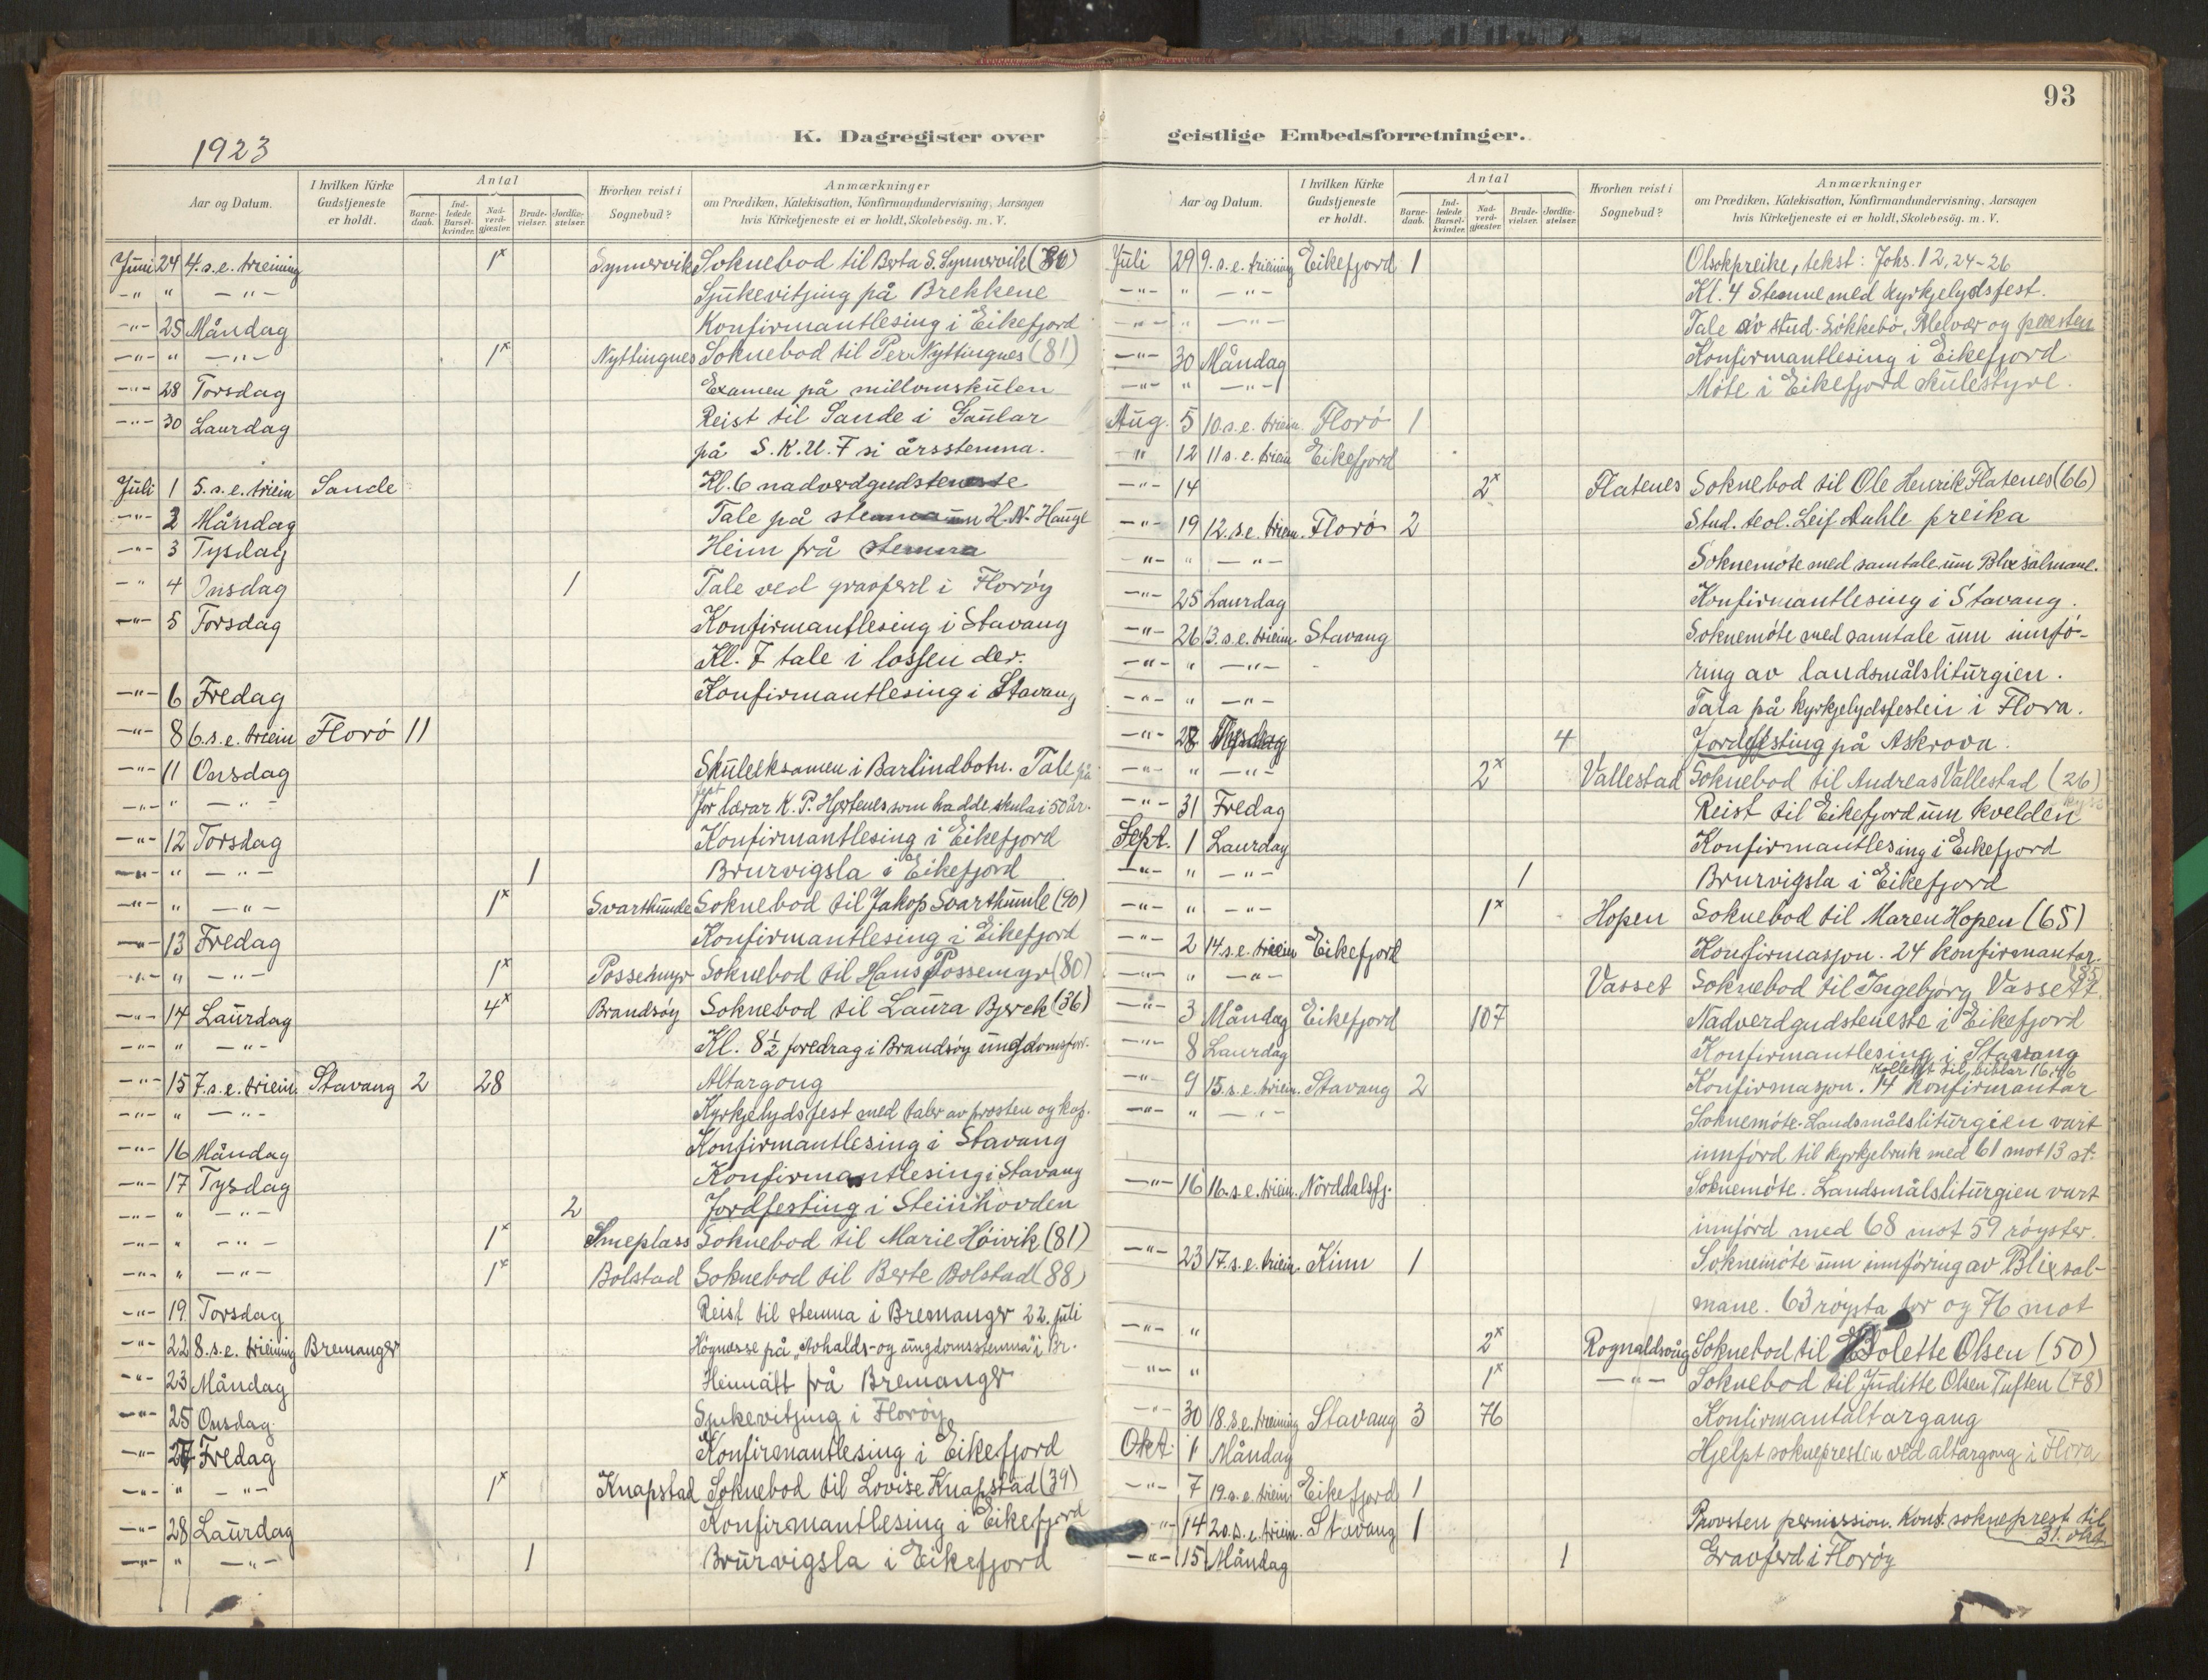 93
K. Dagregister over geistlige Embedsforretninger.
1923
Aar og Datum. I hvilken Kirke Gudstjeneste er holdt. Antal Barne-daab. Ind-ledede Barsel-kvinder. Nad-verd-gjæster. Brude-vielser. Jordfæ-stelser. Hvorhen reist i Sognebud? Anmærkninger om Prædiken, Katekisation, Konfirmandundervisning, Aarsagen hvis Kirketjeneste ei er holdt, Skolebesøg. m. V.
Juni 24 4. s. e. treining 1x Synnervik Soknebod til Berta S. Synnervik (80)
-"- " -"- Sjukevitjing på Brekkene
-"- 25 Måndag Konfirmantlesing i Eikefjord
-"- " -"- 1x Nyttingnes Soknebod til Per Nyttingnes (81)
-"- 28 Torsdag Examen på millomskulen
-"- 30 Laurdag Reist til Sande i Gaular
på S.K.U.F si årsstemna.
Juli 1 5. s. e. triein Sande Kl. 6 nadverdgudsteneste
-"- 2 Måndag Tale på stemna um H. N. Hauge
-"- 3 Tysdag Heim frå stemna
-"- 4 Onsdag 1 Tale ved gravferd i Florøy
-"- 5 Torsdag Konfirmantlesing i Stavang
Kl. 7 tale i lossen der.
-"- 6 Fredag Konfirmantlesing i Stavang
-"- 8 6. s. e. triein Florø 11
-"- 11 Onsdag Skuleeksamen i Barlindbotn. Tale på
-"- " -"- fest for lærar K. P. Hjortenes som hadde skula i 50 år.
-"- 12 Torsdag Konfirmantlesing i Eikefjord
-"- " -"- 1 Brurvigsla i Eikefjord
-"- " -"- 1x Svarthumle Soknebod til Jakop Svarthumle (90)
-"- 13 Fredag Konfirmantlesing i Eikefjord
-"- " -"- 1x Possemyr Soknebod til Hans Possemyr (80)
-"- 14 Laurdag 4x Brandsøy Soknebod til Laura Bjerck (36)
-"- " -"- Kl. 8½ foredrag i Brandsøy ungdomsfor.
-"- 15 7. s. e. triein. Stavang 2 28 Altargong
-"- " -"- Kyrkjelydsfest med talar av prosten og kap.
-"- 16 Måndag Konfirmantlesing i Stavang
-"- 17 Tysdag Konfirmantlesing i Stavang
-"- " -"- 2 Jordfesting i Steinhovden
-"- " -"- 1x Smeplass Soknebod til Marie Høivik (81)
-"- " -"- 1x Bolstad Soknebod til Berte Bolstad (88)
-"- 19 Torsdag Reist til stemna i Bremanger 22. juli
-"- 22 8. s. e. treining Bremanger Høgmesse på „Avhalds- og ungdomsstemna" i Br.
-"- 23 Måndag Heimatt frå Bremanger
-"- 25 Onsdag Sjukevitjing i Florøy
-"- 27 Fredag Konfirmantlesing i Eikefjord
-"- " -"- 1x Knapstad Soknebod til Lovise Knapstad (39)
-"- 28 Laurdag Konfirmantlesing i Eikefjord
-"- " -"- 1 Brurvigsla i Eikefjord
Aar og Datum. I hvilken Kirke Gudstjeneste er holdt. Antal Barne-daab. Ind-ledede Barsel-kvinder. Nad-verd-gjæster. Brude-vielser. Jordfæ-stelser. Hvorhen reist i Sognebud? Anmærkninger om Prædiken, Katekisation, Konfirmandundervisning, Aarsagen hvis Kirketjeneste ei er holdt, Skolebesøg. m. V.
Juli 29 9. s. e. treining Eikefjord 1 Olsokpreike, tekst: Johs. 12, 24-26
-"- " -"- Kl. 4 Stemne med kyrkjelydsfest.
-"- " -"- Tale av stud. Løkkebø, og presten
-"- 30 Måndag Konfirmantlesing i Eikefjord
-"- " -"- Møte i Eikefjord skulestyre.
Aug. 5 10. s. e. triein. Florø 1
" 12 11 s. e. triein Eikefjord
-"- 14 2x Flatenes Soknebod til Ole Henrik Flatenes (66)
-"- 19 12. s. e. triein. Florø 2 Stud. teol. Leif Auhle preika
-"- " -"- Soknemøte med samtale um Blix salmane.
-"- 25 Laurdag Konfirmantlesing i Stavang.
-"- 26 13. s. e. triein. Stavang Soknemøte med samtale um innfø-
-"- " -"- ring av landsmålsliturgien.
-"- " -"- Tala på kyrkjelydsfesten i Flora.
-"- 28 Tysdag 4 Jordfesting på Askrova.
-"- " -"- 2x Vallestad Soknebod til Andreas Vallestad (26)
-"- 31 Fredag Reist til Eikefjord um kvelden
Sept. 1 Laurdag Konfirmantlesing i Eikefjord
-"- " -"- 1 Brurvigsla i Eikefjord
-"- " -"- 1x Hopen Soknebod til Maren Hopen (65)
-"- 2 14. s. e. triein Eikefjord Konfirmasjon. 24 konfirmantar.
-"- " -"- Vasset Soknebod til Ingebjørg Vasset (85)
-"- 3 Måndag Eikefjord 107 Nadverdgudsteneste i Eikefjord
-"- 8 Laurdag Konfirmantlesing i Stavang
kollekt til biblar 16.46
-"- 9 15. s. e. triein. Stavang 2 Konfirmasjon. 14 konfirmantar
-"- " -"- Soknemøte. Landsmålsliturgien vart
innførd til kyrkjebruk med 61 mot 13 st.
-"- 16 16. s. e. triein. Norddalsfj. Soknemøte. Landsmålsliturgien vart
innførd med 68 mot 59 røyster.
-"- 23 17. s. e. triein. Kinn 1 Soknemøte um innføring av Blix sal-
mane. 63 røysta for og 76 mot
-"- " 2x Rognaldsvåg Soknebod til Bolette Olsen (50)
-"- " 1x -"- Soknebod til Juditte Olsen Tuften (78)
-"- 30 18. s. e. treining Stavang 3 76 Konfirmantaltargang
Okt. 1 Måndag Hjelpt soknepresten ved altargong i Flora
-"- 7 19. s. e. triein Eikefjord 1
-"- 14 20. s. e. triein. Stavang 1 Provsten permission. Konst. sokneprest til 31. okt.
-"- 15 Måndag 1 Gravferd i Florøy